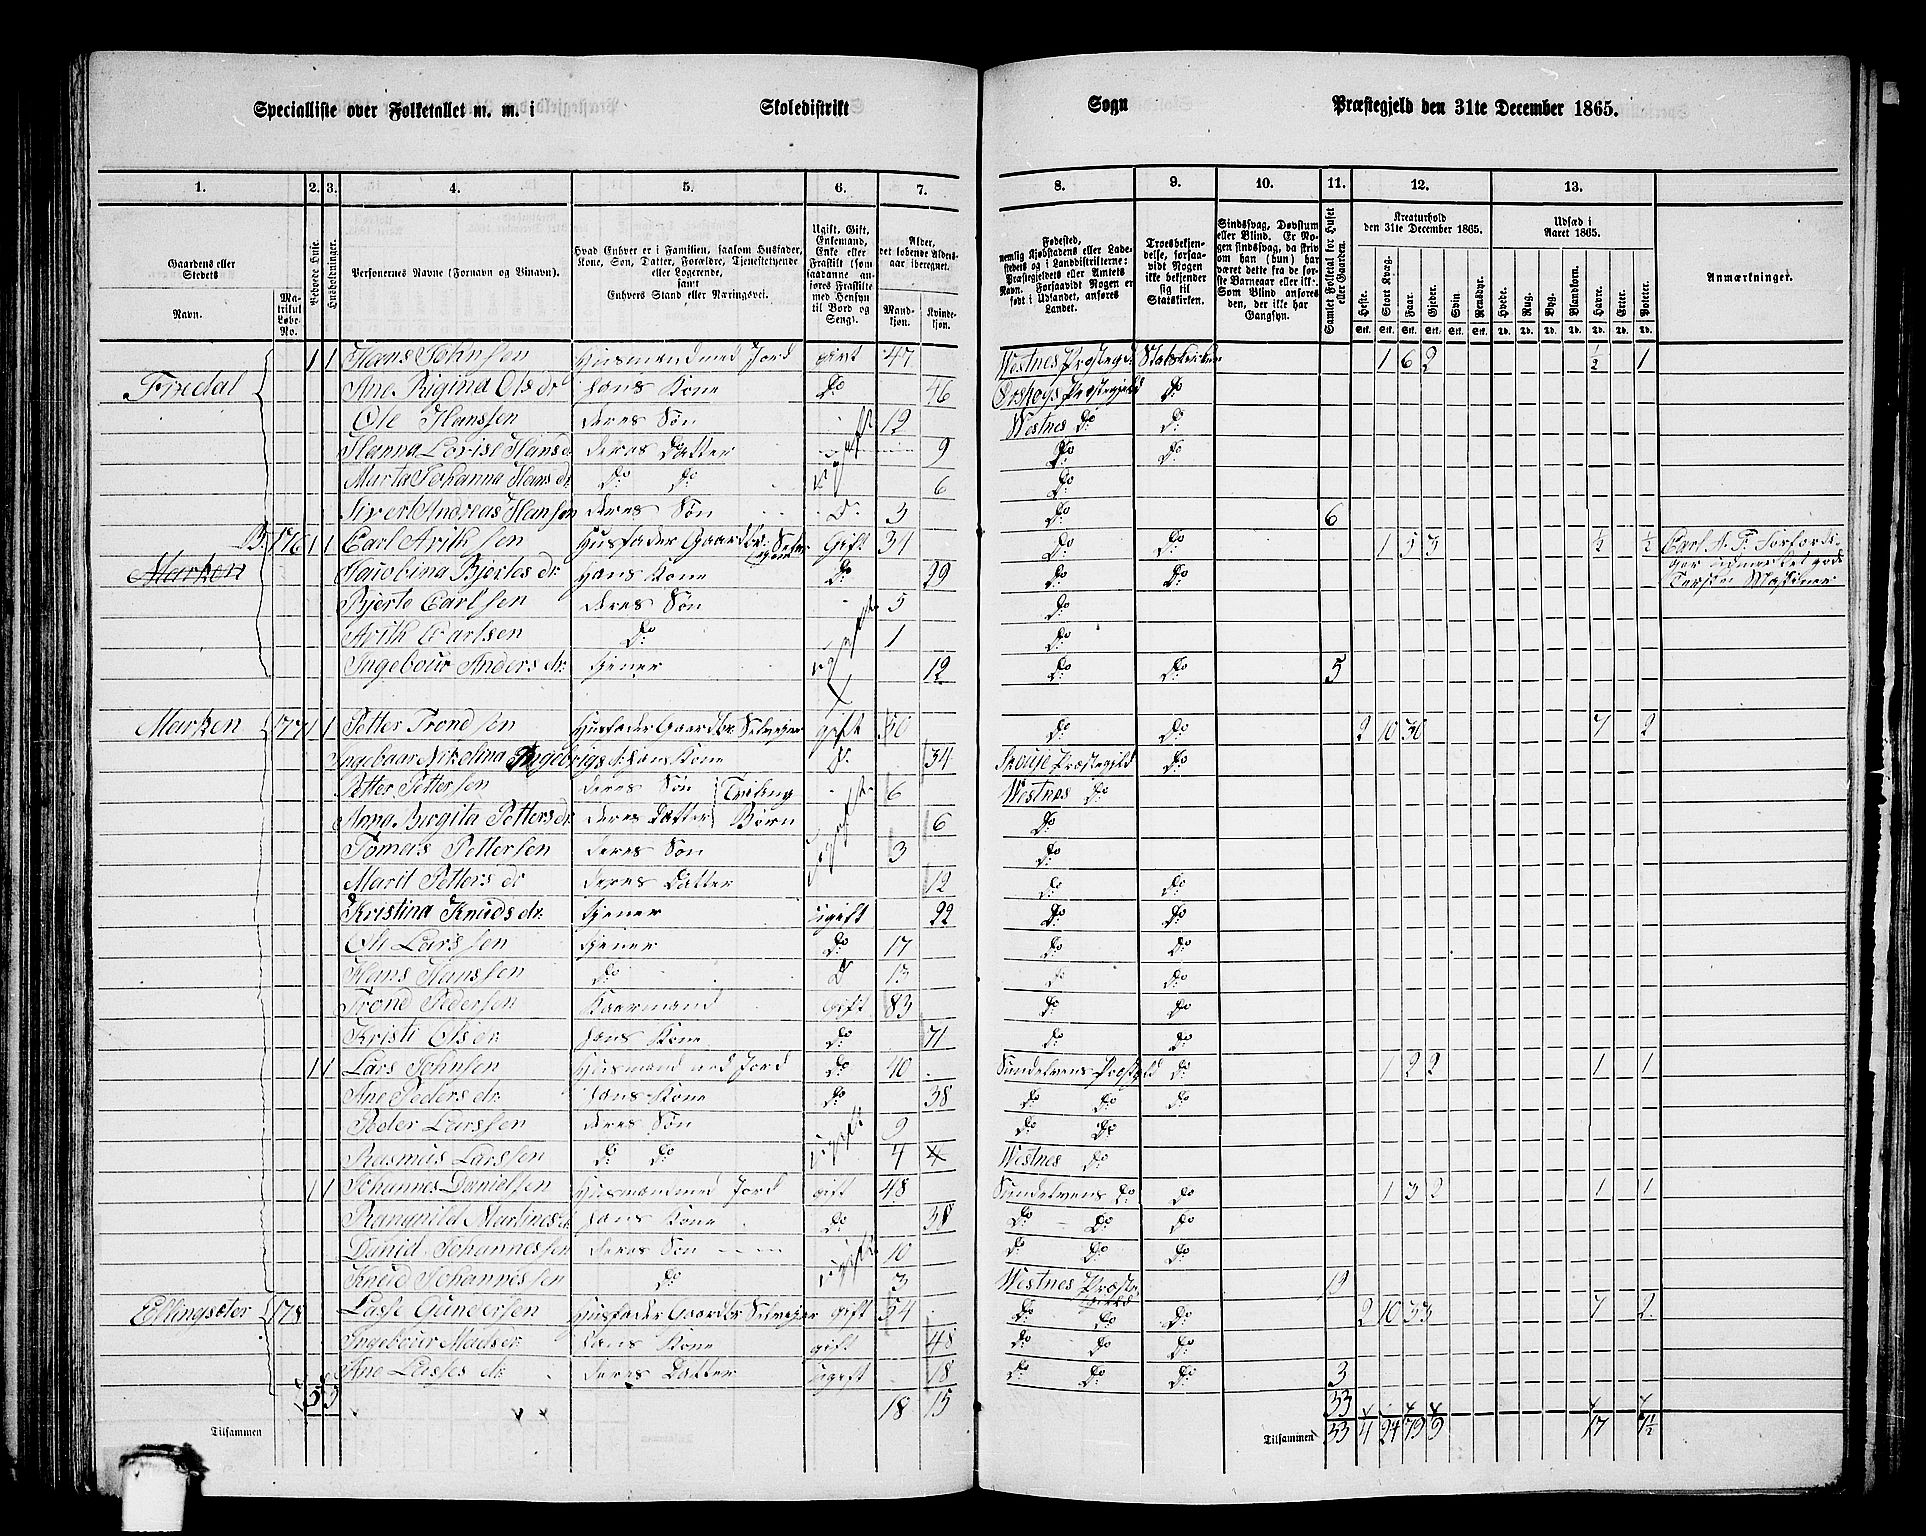 Specialliste over Folketallet m. m. i Skoledistrikt Sogn Præstegjeld den 31te December 1865.
1. 2. 3. 4. 5. 6. 7. 8. 9. 10. 11. 12. 13.
Gaardens eller Stedets Navn. Matrikul Løbe-No. Beboede Huse. Husholdninger.
Personernes Navne (Fornavn og Tilnavn).
Hvad Enhver er i Familien, saasom Husfader, Kone, Søn, Datter, Forældre, Tjenestetyende eller Logerende, samt Enhvers Stand eller Næringsvei.
Ugift, Gift, Enkemand, Enke eller Fraskilt (som saadanne anføres Fraskilte med Hensyn til Bord og Seng).
Alder, det løbende Aldersaar iberegnet. Mandkjøn. Kvindekjøn.
Fødested, nemlig Kjøbstadens eller Ladestedets og i Landdistrikterne: Præstegjeldets eller Amtets Navn. Forsaavidt Nogen er født i Udlandet, anføres Landet.
Troesbekjendelse, forsaavidt Nogen ikke bekjender sig til Statskirken.
Sindssvag, Døvstum eller Blind. Er Nogen sindssvag, da skrives om han (hun) har været dette fra de første Barneaar eller ikke. Som Blind anføres den, der ikke har Gangsyn.
Samlet Folketal for Huset eller Gaarden.
Kreaturhold den 31te December 1865. Heste. Stort Kvæg. Faar. Gjeder. Svin. Rensdyr.
Udsæd i Aaret 1865. Hvede. Rug. Byg. Blandkorn. Havre. Erter. Poteter.
Anmærkninger.
1 1 Hans Johnsen Husmand med Jord givt 47 Westnes Præstegjeld Statskirken 1 6 2 ½ 1
Fredal Ane Rigina Ols dr Hans Kone Do 46 Ørskogs Præstegjeld Do
Ole Hanssen Deres Søn 12 Westnes Do Do
Hanna Lovise Hans d Deres Datter 9 Do Do
Marta Johanna Hans dr. Do Do 6 Do
Sivert Andreas Hansøn Deres Søn Do 3 Do 6
B. 176 1 1 Carl Arithsen Husfader Gaardbr. Selveier Gift 34 Do Do 1 5 3 ½ ½
Marken Jacobina Bjertes dr. Hans Kone Do 29 Do Do
Bjerte Carlsen Deres Søn 5 Do
Arith Carlsen Do ugift 1 Do
Ingebour Anders dr. tjener 12 Do Do 5
Marken 177 1 1 Petter Trondsen Husfader Gaardbr. Selveier gift 50 Do Do 2 10 30 7 2
Ingebaar Nikolina Ingebrigs d Hans Kone Do 34 Skouje Præstegjeld Do
Petter Pettersen Deres Søn Tviling 6 Westnes Do
Anna Birgita Petters dr. Deres Datter Børn 6 Do
Tomas Pettersen Deres Søn ugift 3 Do
Marit Petters dr Deres Datter 12 Do Do
Kristina Knuds dr. tjener ugift 22 Do Do
Ole Larssen tjener Do 17 Do Do
Hans Hanssen Do Do 13 Do Do
Trond Pedersen Kaarmand Gift 83 Do Do
Kristi Ols dr. Hans Kone Do 71 Do Do
1 1 Lars Johnsen Husmand med Jord Do 40 Sundelvens Præstgjeld Do 1 2 2 1 1
Ane Peders dr. Hans Kone Do 38 Do Do Do
Peder Larssen Deres Søn 9 Do Do
Rasmus Larssen Do Do ugift 4 4 Westnes Do
1 1 Johannes Danielsen Husmand med Jord gift 48 Sundelvens Do Do 1 3 2 1 1
Rangnild Martines d Hans Kone Do 38 Do Do Do
David Johannessen Deres Søn 10 Do Do Do
Knud Johannessen Do ugift 3 Westnes Præstegjeld 19
Ellingsæter 178 Lasse Gundersen Husfader Gaardbr Selveier gift 54 Do Do Do 2 10 33 7 2
Ingebour Mads dr. Hans Kone gift 48 Do Do Do
Ane Lasses dr. Deres Datter ugift 18 Do Do Do 3
5 5 18 15 33
Tilsammen Tilsammen 33 4 24 79 9 17 7½